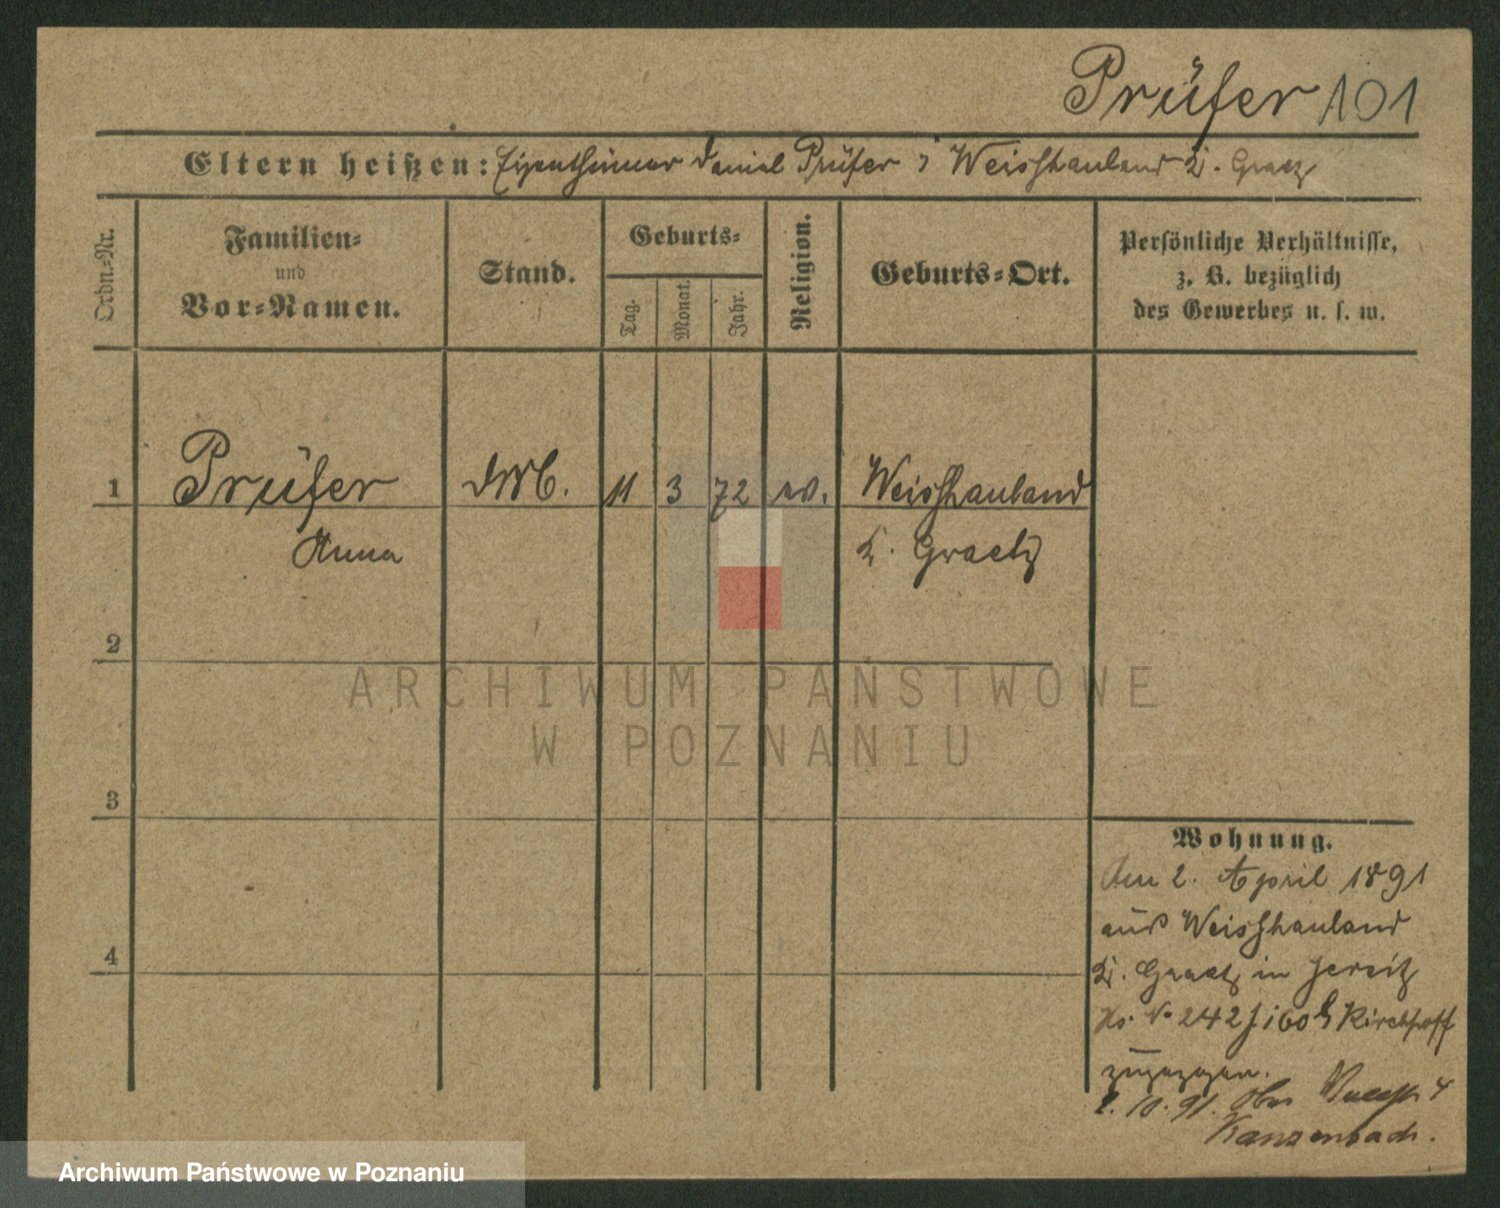 Prüfer 101
Eltern heißen: Eigenthümer Daniel Prüfer i Weisshauland K. Graetz
Ordn.-Nr.
Familien-
und
Vor-Namen.
Stand.
Geburts-
Tag.
Monat.
Jahr.
Religion.
Geburts-Ort.
Persönliche Verhältnisse,
z. B. bezüglich
des Gewerbes u. s. w.
1 Prüfer 11 3 72 ev. Weisshauland
Anna K. Graetz
2
ARCHIWUM PAŃSTWOWE
W POZNANIU
3
4
Wohnung.
Am 2. April 1891
aus Weisshauland
K. Graetz in Jersitz
Hs. No 242 Kirchhoff
zugezogen.
2. 10. 91.
Kanzenbach.
Archiwum Państwowe w Poznaniu